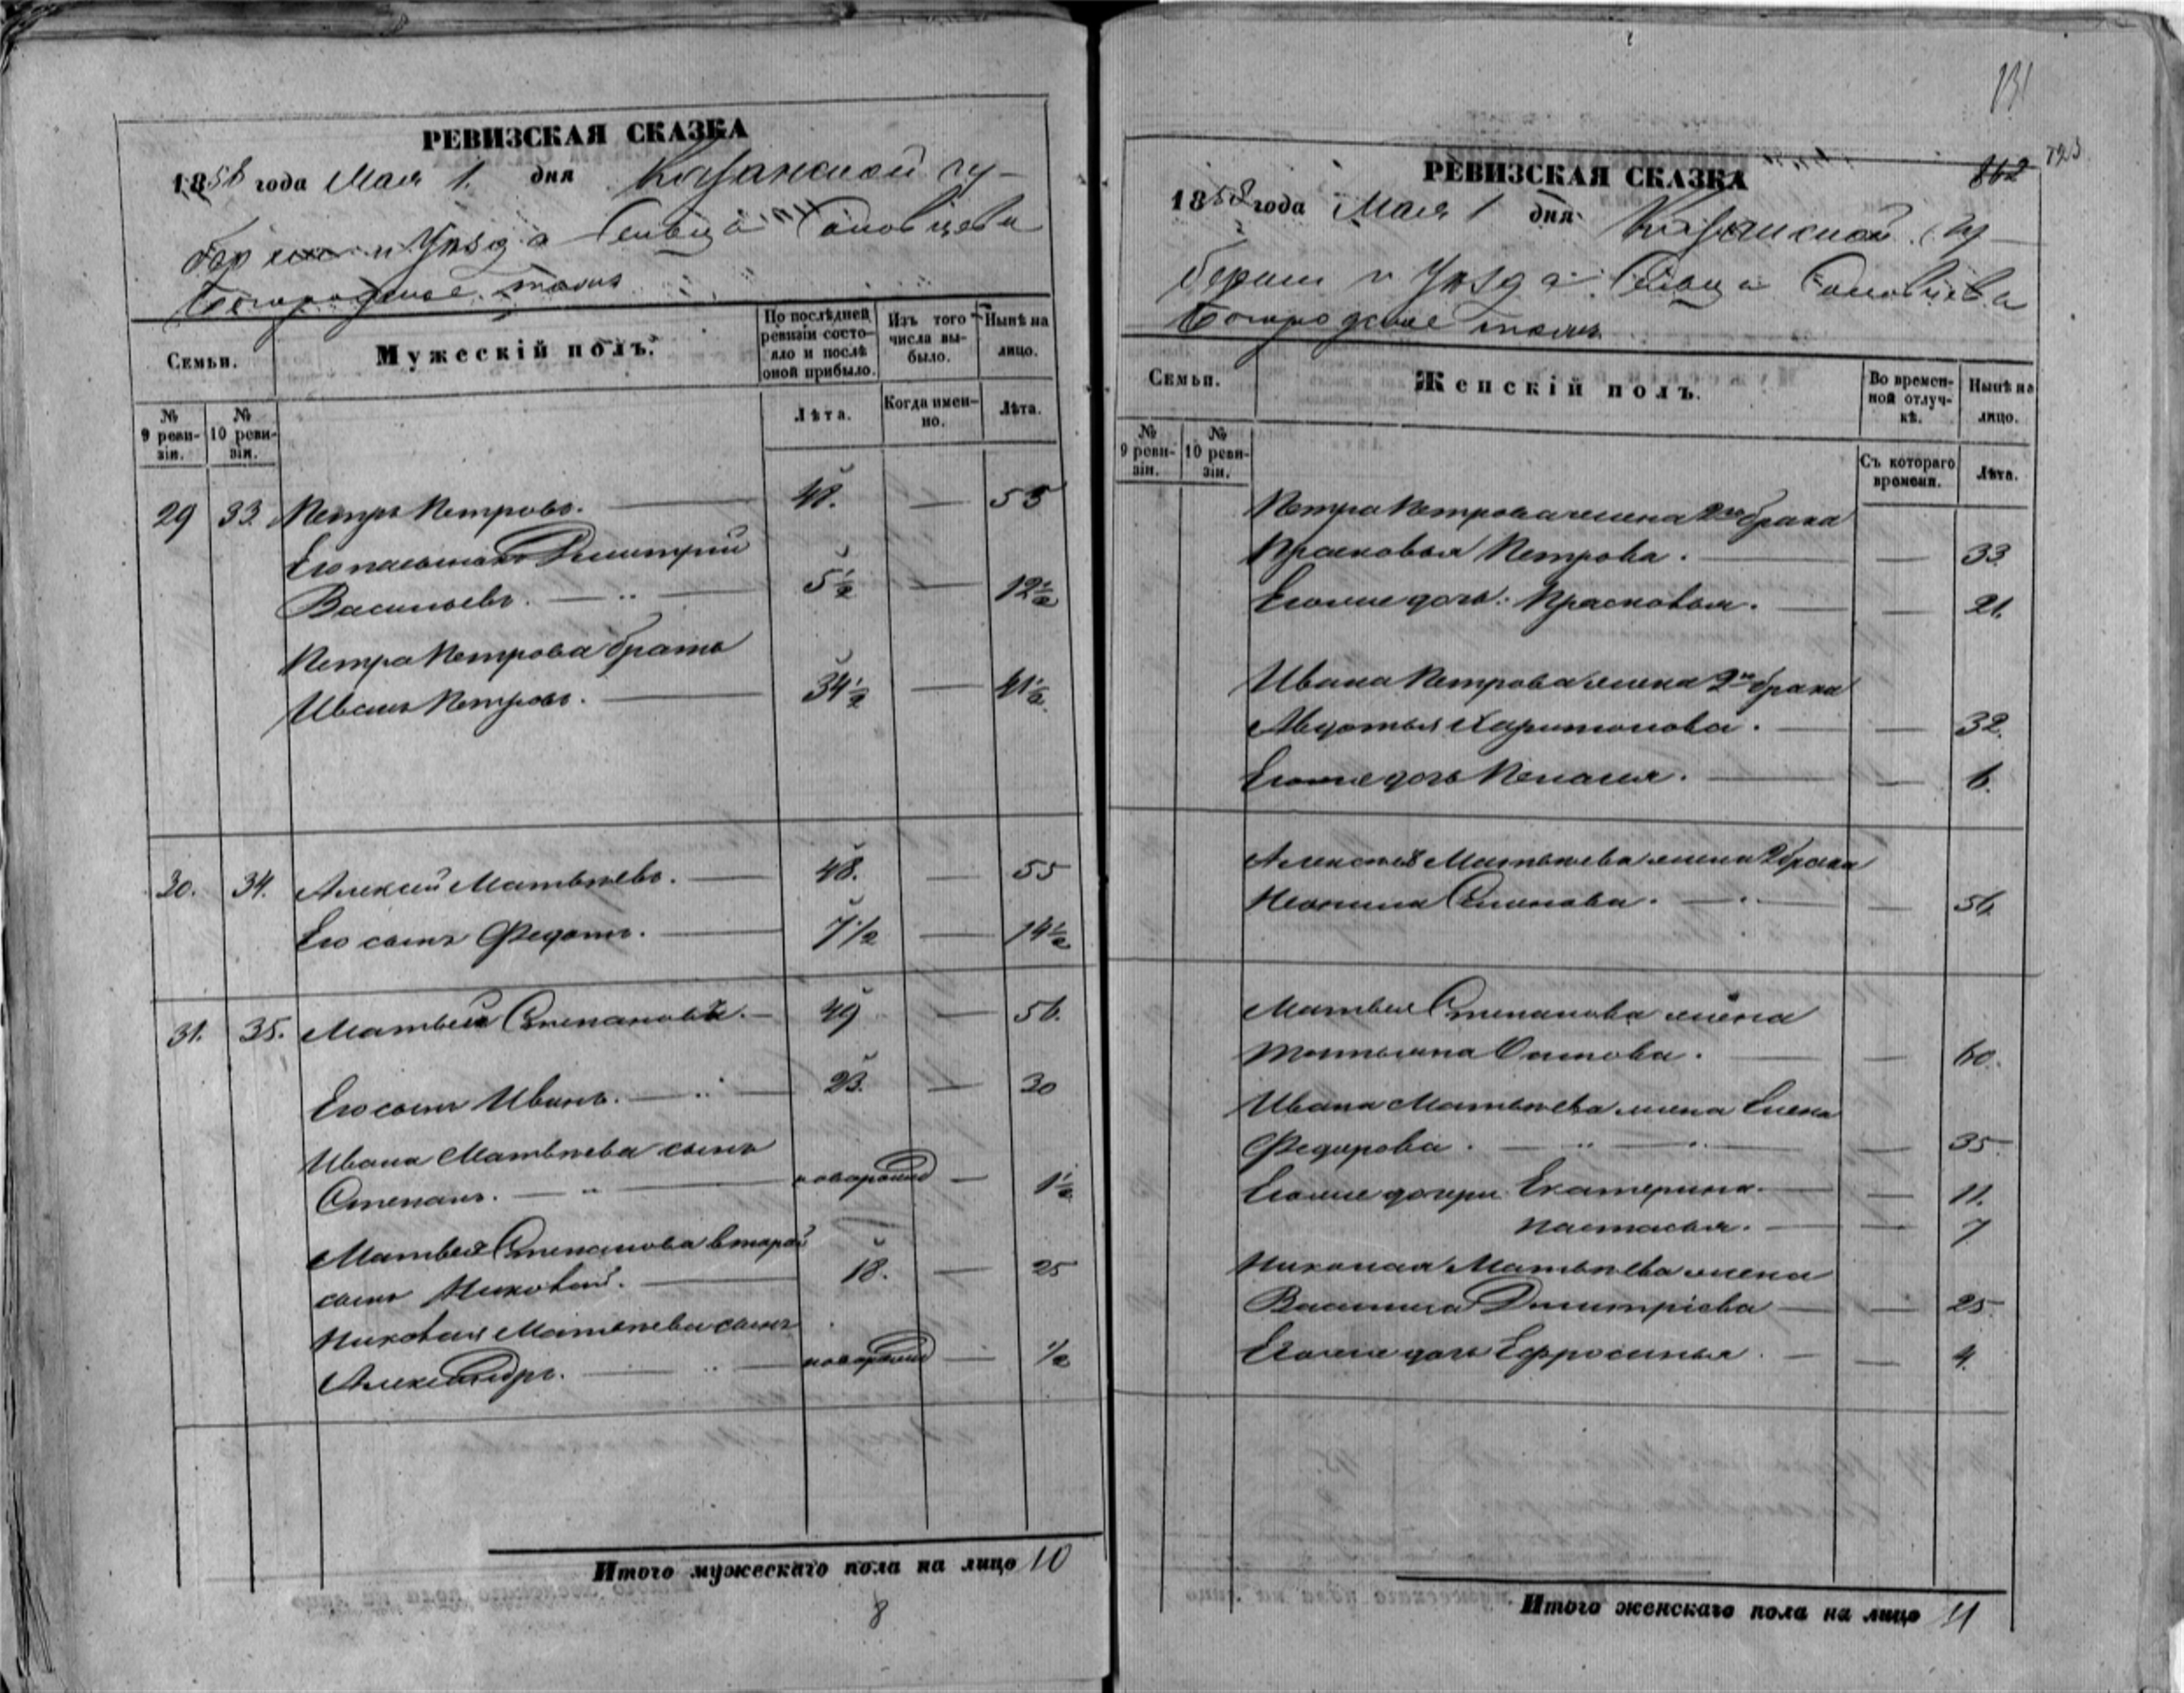 РЕВИЗСКАЯ СКАЗКА
1858 года Мая 1. дня Казанской гу-
берніи и Уѣзда Сельца
Богородское тожъ
Семьи.
Мужескій полъ.
По послѣдней ревизіи состо-яло и послѣ оной прибыло.
Изъ того числа вы-было.
Нынѣ на лицо.
№ 9 реви-зіи.
№ 10 реви-зіи.
Лѣта.
Когда имен-но.
Лѣта.
29 33. Петръ Петровъ. — 48. — 55
Его пасынокъ Дмитрій
Васильевъ. — 5½ — 12½
Петра Петрова братъ
Иванъ Петровъ. — 34½ — 41½
30. 34. Алексей Матвѣевъ. — 48. — 55
Его сынъ Федотъ. — 7½ — 14½
31. 35. Матвей Степановъ. — 49 — 56.
Его сынъ Иванъ. — 23. — 30
Ивана Матвѣева сынъ
Степанъ. — новорожд — 1½
Матвея Степанова второй
сынъ Николай. — 18. — 25
Николая Матвѣева сынъ
Александръ. — новорожд — ½
Итого мужескаго пола на лицо 10
8
131
862
723
РЕВИЗСКАЯ СКАЗКА
1858 года Мая 1 дня Казанской гу-
берніи и Уѣзда Сельца
Богородское тожъ
Семьи.
Женскій полъ.
Во времен-ной отлуч-кѣ.
Нынѣ на лицо.
№ 9 реви-зіи.
№ 10 реви-зіи.
Съ котораго времени.
Лѣта.
Петра Петрова жена 2го брака
Прасковья Петрова. — — 33.
Егоже дочь: Прасковья. — — 21.
Ивана Петрова жена 2го брака
Авдотья Харитонова. — — 32.
Егоже дочь Пелагея. — — 6.
Алексея Матвѣева жена 2 брака
Неонила Семенова. — — 56
Матвея Степанова жена
Татьяна — — 60.
Ивана Матвѣева жена Елена
Федорова. — — 35
Егоже дочери Екатерина. — — 11.
Настасья. — — 7
Николая Матвѣева жена
Василиса Дмитріева — — 25
Егоже дочь Ефросинья. — — 4.
Итого женскаго пола на лицо 11